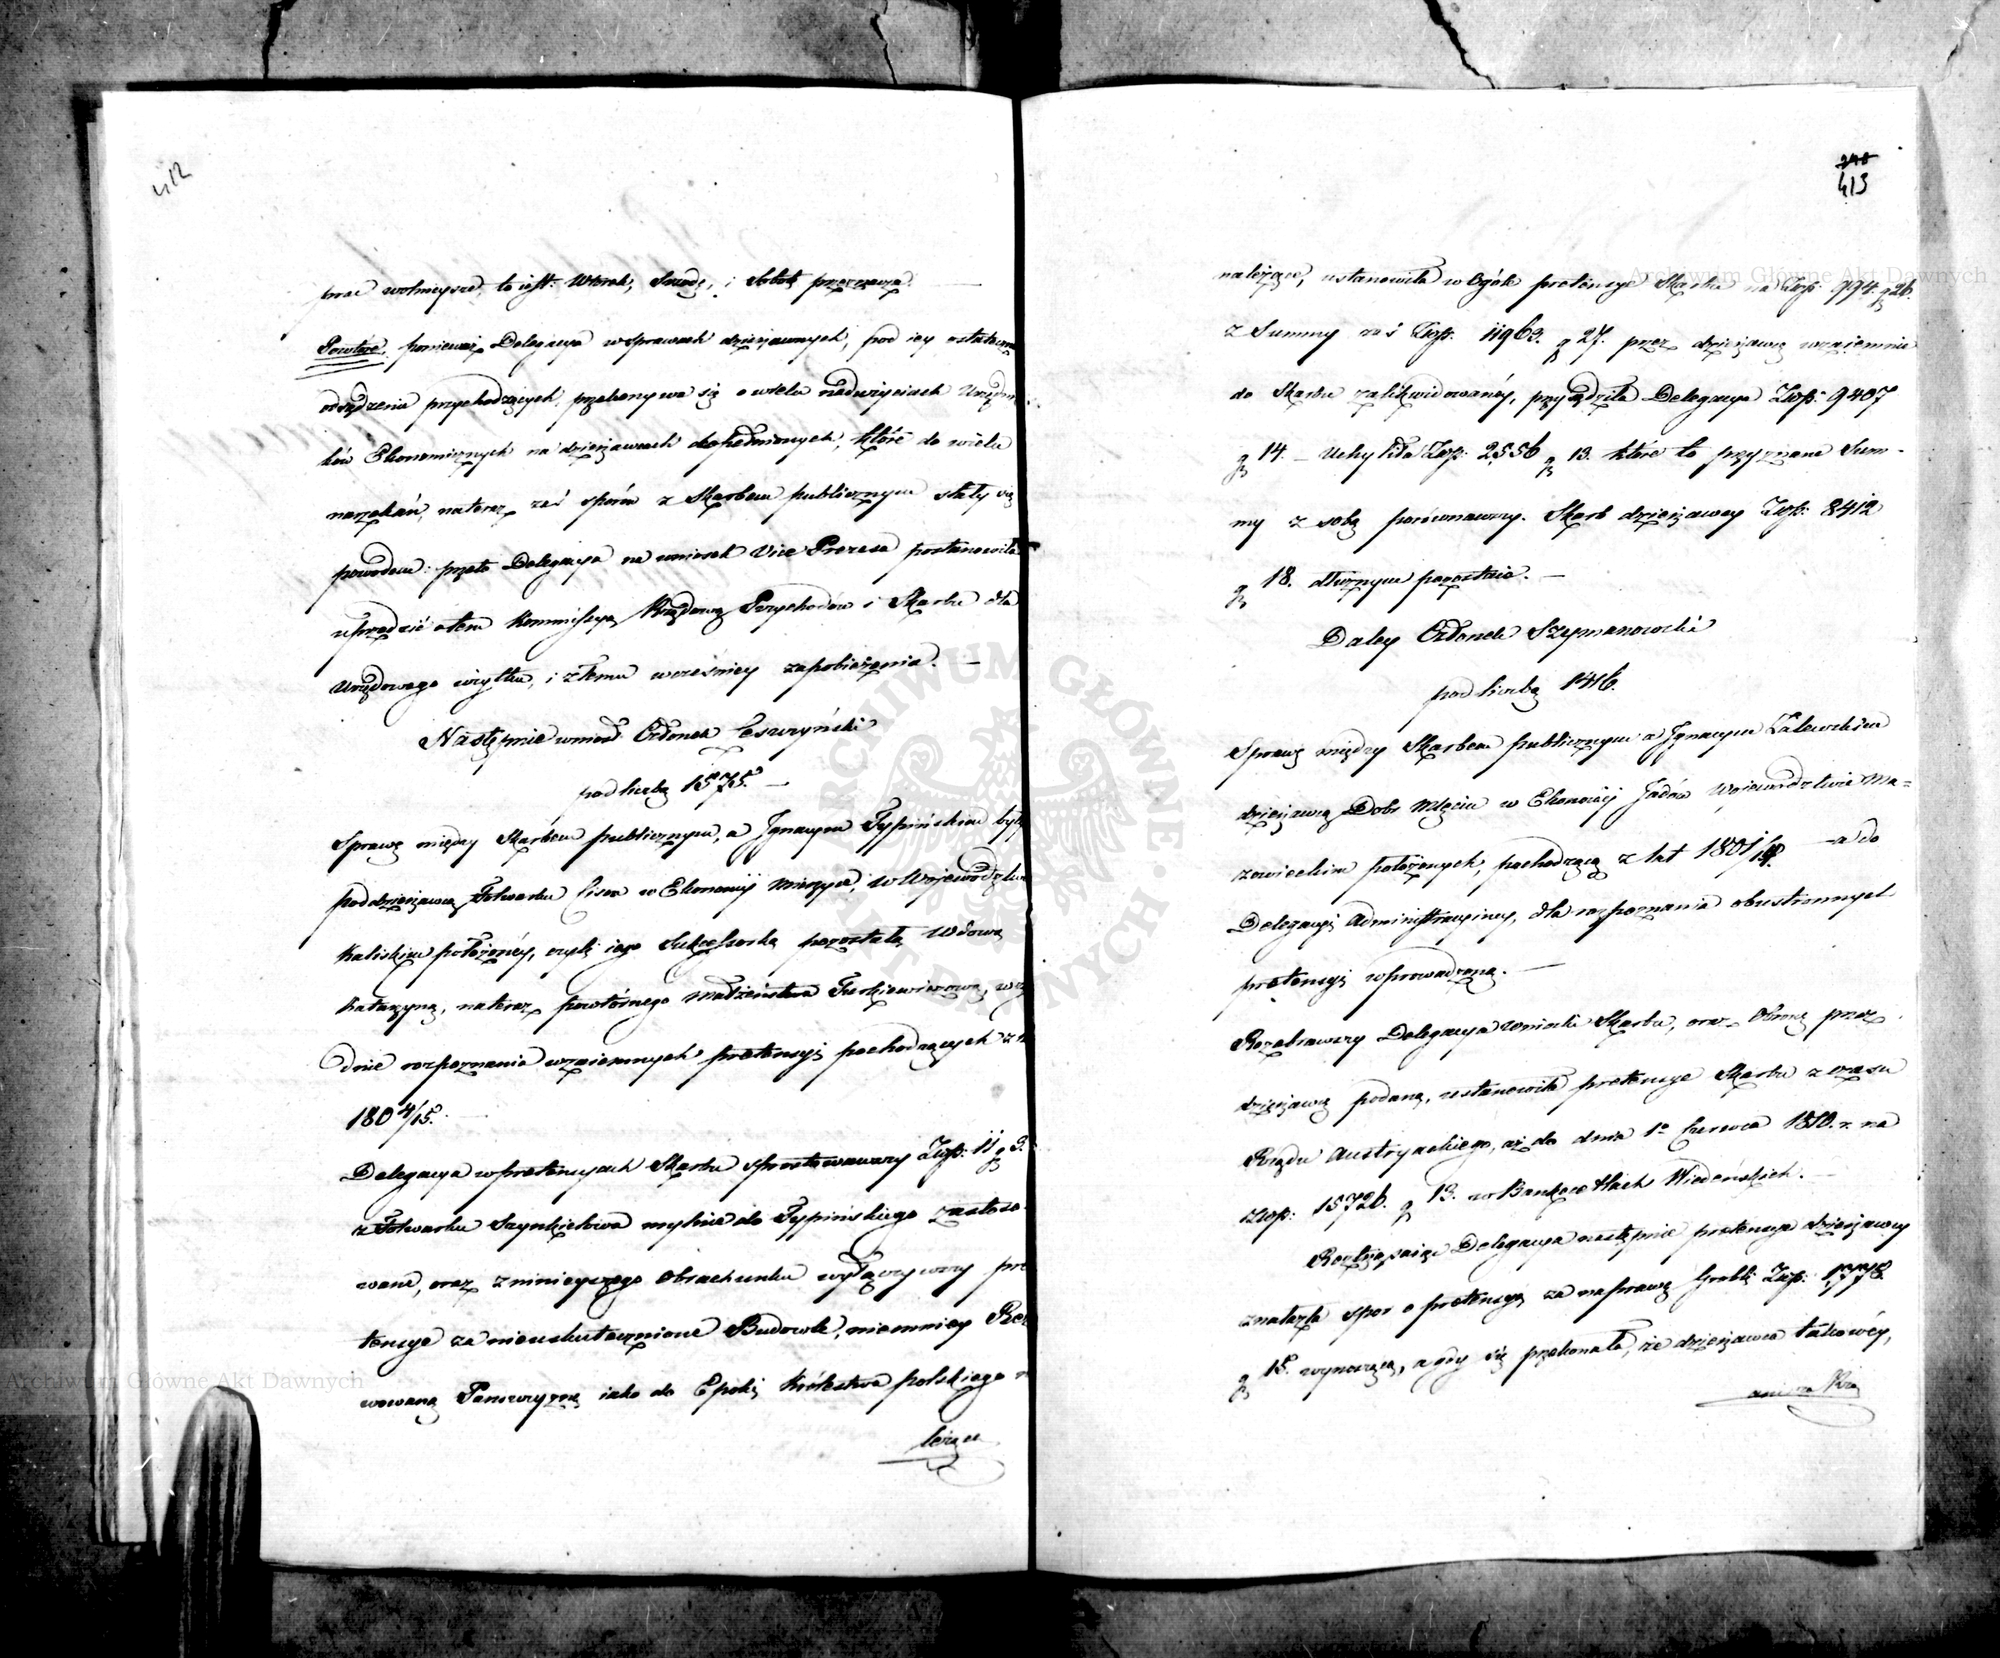 412
prac wolnieysze, to iest: Wtorek, Srodę, i Sobotę przeznacza.
Powtóre, ponieważ Delegacya w sprawach dzierżawnych, pod iey ostateczne
osądzenia przychodzących, przekonywa się o wielu nadużyciach Urzędni-
ków Ekonomicznych na dzierżawcach dopełnionych, które do wielu
narzekań, nateraz zaś sporów z Skarbem publicznym stały się
powodem: przeto Delegacya na wniosek Vice Prezesa postanowiła
uprzedzić o tem Kommissyą Rządową Przychodów i Skarbu dla
Urzędowego użytku, i złemu wcześniey zapobieżenia.
Następnie wniosł Członek Leszczyński
pod liczbą 1575.
Sprawę między Skarbem publicznym, a Ignacym Typińskim byłym
poddzierżawcą Folwarku Lisew w Ekonomij Mieczyce, w Województwie
Kaliskim położonéy, czyli iego Sukcessorką pozostałą Wdową
Katarzyną, nateraz powtórnego małżeństwa Turkiewiczową, wzglę-
dnie rozpoznania wzaiemnych pretensyi pochodzących z r.
1804/15.
Delegacya w pretensyach Skarbu sprostowawszy Złp: 11 g 3.
z Folwarku Szynkielowa mylnie do Typińskiego zastoso-
wane, oraz z ninieyszego obrachunku wyłączywszy pre-
tensye za nieuskutecznione Budowle, niemniey Rez-
wowaną Panszczyznę iako do Epoki Królestwa polskiego n
leżące
248
413
należące, ustanowiła w Ogóle pretensye Skarbu na Złp: 994. g 26.
z Summy zaś Złp: 11963. g 27. przez dzierżawcę wzaiemnie
do Skarbu zalikwidowanéy, przysądziła Delegacya Złp: 9407
g 14. – Uchyliła Złp: 2556 g 13. które to przyznane Sum-
my z sobą porównawszy. Skarb dzierżawcy Złp: 8412
g 18. dłużnym pozostaie.
Daley Członek Szymanowski
pod liczbą 1416.
Sprawę między Skarbem publicznym a Ignacym Zalewskim
dzierżawcą Dobr Mlęcin w Ekonomij Jadów Woiewództwie Ma-
zowieckim położonych, pochodzącą z lat 1801/ – a do
Delegacyi Administracyiney, dla rozpoznania obustronnych
pretensyi wprowadzoną.
Rozebrawszy Delegacya wnioski Skarbu, oraz Obronę przez
dzierżawcę podaną, ustanowiła pretensye Skarbu z czasu
Rządu Austryackiego, aż do dnia 1o Czerwca 1810. r. na
Złp: 15726. g 13. w Bankocetlach Wiedeńskich.
Roztrząsaiąc Delegacya następnie pretensye dzierżawcy
znalazła spor o pretensyą za naprawę Grobli Złp: 1778
g 15. wynoszącą, a gdy się przekonała, że dzierżawca takowéy,